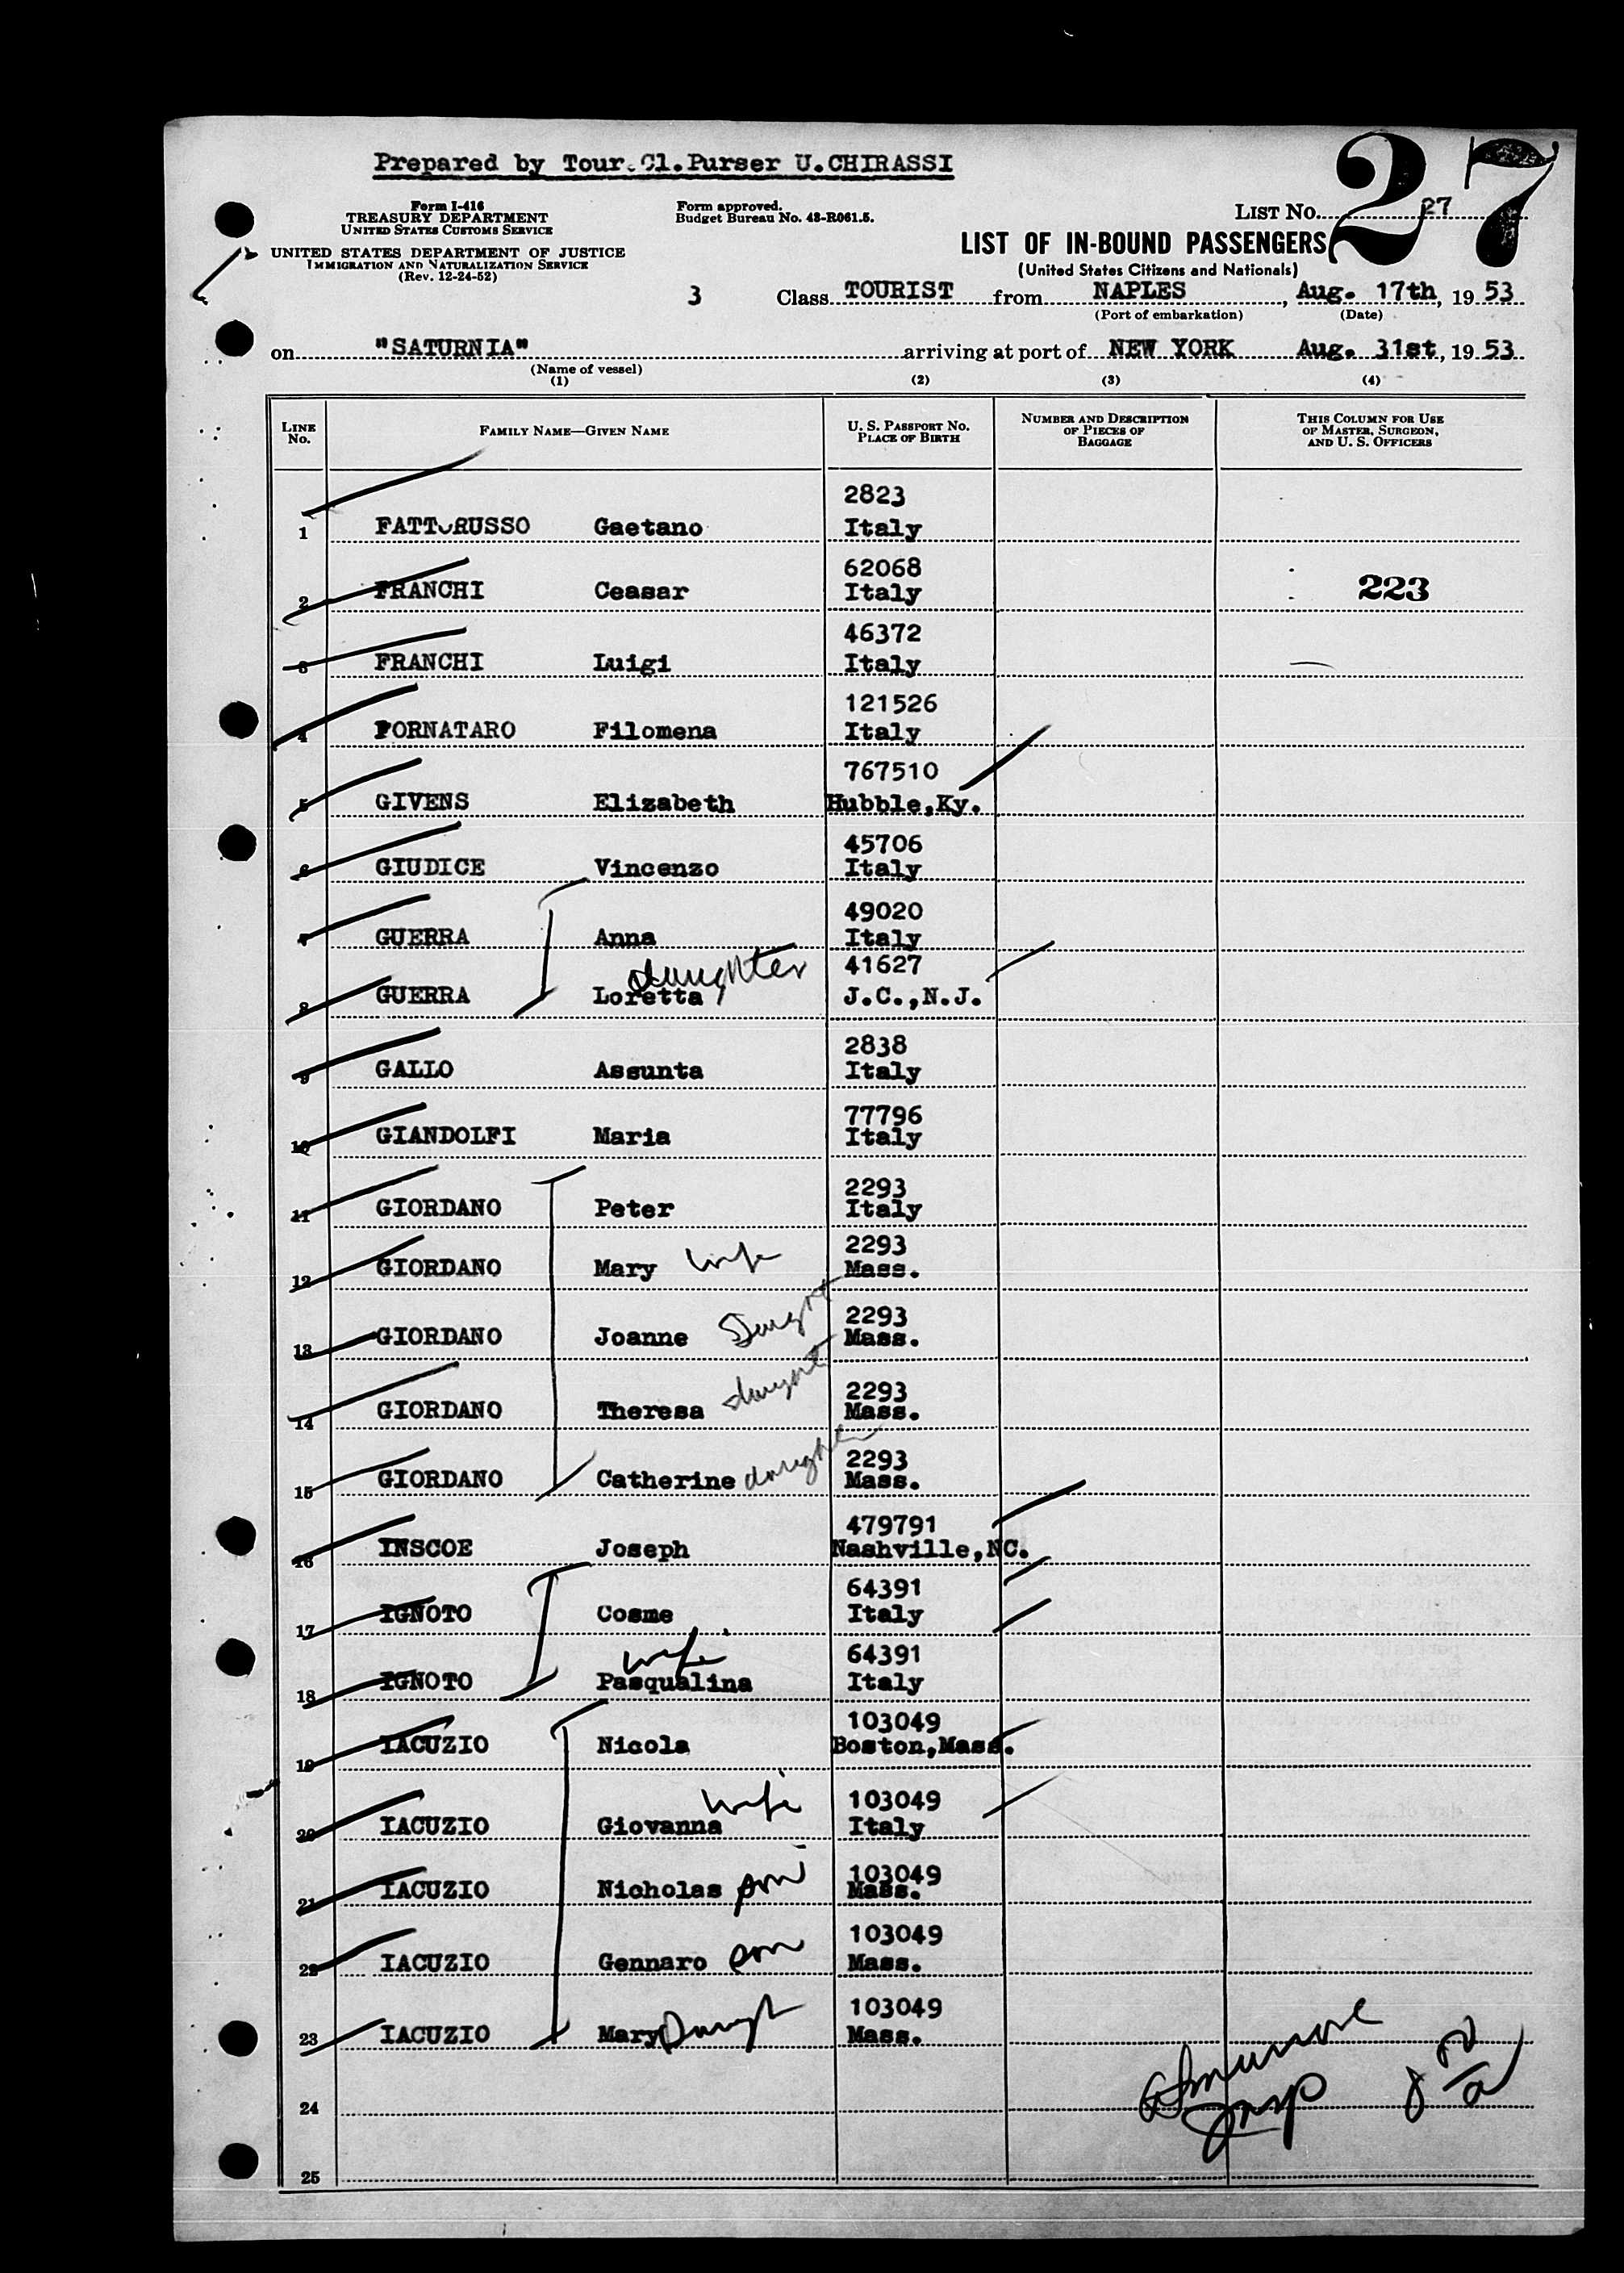 Prepared by Tour.Cl.Purser U.CHIRASSI
27
Form I-416
TREASURY DEPARTMENT
UNITED STATES CUSTOMS SERVICE
UNITED STATES DEPARTMENT OF JUSTICE
IMMIGRATION AND NATURALIZATION SERVICE
(Rev. 12-24-52)
Form approved.
Budget Bureau No. 43-R061.5.
LIST NO. 27
LIST OF IN-BOUND PASSENGERS
(United States Citizens and Nationals)
3 Class TOURIST from NAPLES, Aug. 17th, 1953
(Port of embarkation) (Date)
on "SATURNIA" arriving at port of NEW YORK Aug. 31st, 1953
(Name of vessel)
(1) (2) (3) (4)
LINE NO. FAMILY NAME—GIVEN NAME U. S. PASSPORT NO. PLACE OF BIRTH NUMBER AND DESCRIPTION OF PIECES OF BAGGAGE THIS COLUMN FOR USE OF MASTER, SURGEON, AND U. S. OFFICERS
2823
1 FATTURUSSO Gaetano Italy
62068
2 FRANCHI Ceasar Italy 223
46372
3 FRANCHI Luigi Italy
121526
4 FORNATARO Filomena Italy
767510
5 GIVENS Elizabeth Hubble,Ky.
45706
6 GIUDICE Vincenzo Italy
49020
7 GUERRA Anna Italy
daughter 41627
8 GUERRA Loretta J.C.,N.J.
2838
9 GALLO Assunta Italy
77796
10 GIANDOLFI Maria Italy
2293
11 GIORDANO Peter Italy
2293
12 GIORDANO Mary wife Mass.
2293
13 GIORDANO Joanne Daught Mass.
2293
14 GIORDANO Theresa daught Mass.
2293
15 GIORDANO Catherine daughter Mass.
479791
16 INSCOE Joseph Nashville,NC.
64391
17 IGNOTO Cosme Italy
wife 64391
18 IGNOTO Pasqualina Italy
103049
19 IACUZIO Nicola Boston,Mass.
wife 103049
20 IACUZIO Giovanna Italy
103049
21 IACUZIO Nicholas son Mass.
103049
22 IACUZIO Gennaro son Mass.
103049
23 IACUZIO Mary Daugh Mass.
24
Insp
25